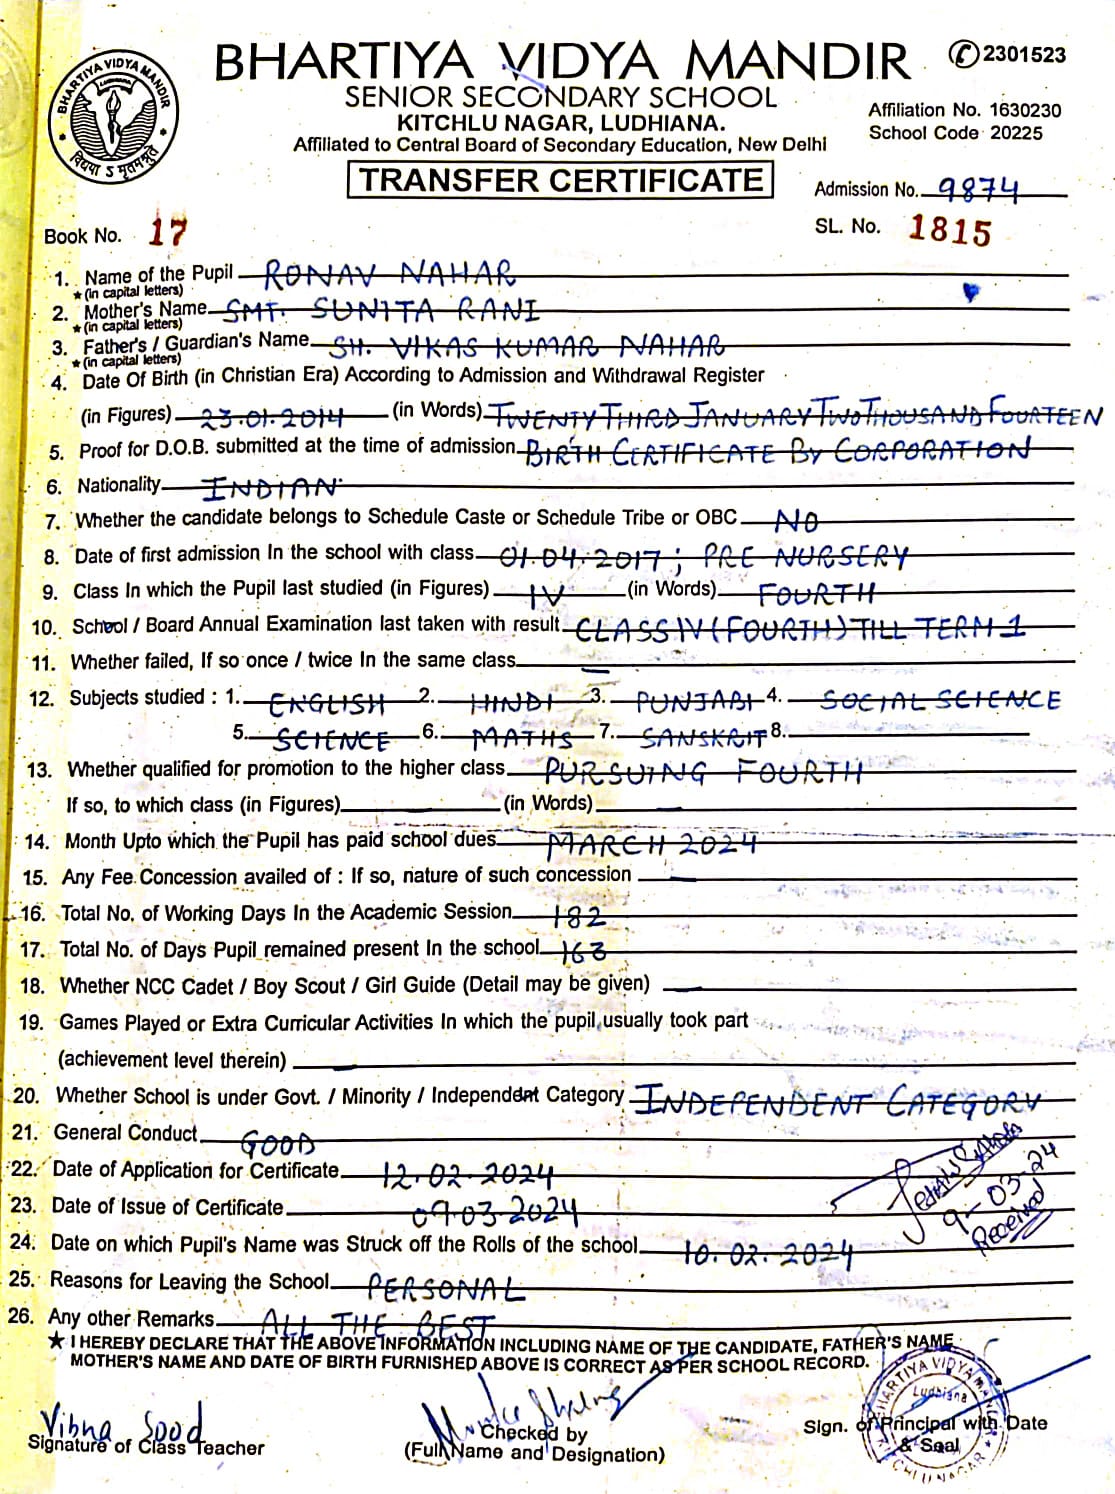 BHARTIYA VIDYA MANDIR
विद्यया ऽ मृतमश्नुते
BHARTIYA VIDYA MANDIR 2301523
SENIOR SECONDARY SCHOOL
KITCHLU NAGAR, LUDHIANA.
Affiliation No. 1630230
School Code 20225
Affiliated to Central Board of Secondary Education, New Delhi
TRANSFER CERTIFICATE
Admission No. 9874
Book No. 17 SL. No. 1815
1. Name of the Pupil RONAV NAHAR
★ (in capital letters)
2. Mother's Name SMT. SUNITA RANI
★ (in capital letters)
3. Father's / Guardian's Name SH. VIKAS KUMAR NAHAR
★ (in capital letters)
4. Date Of Birth (in Christian Era) According to Admission and Withdrawal Register
(in Figures) 23.01.2014 (in Words) TWENTY THIRD JANUARY TWO THOUSAND FOURTEEN
5. Proof for D.O.B. submitted at the time of admission BIRTH CERTIFICATE BY CORPORATION
6. Nationality INDIAN
7. Whether the candidate belongs to Schedule Caste or Schedule Tribe or OBC NO
8. Date of first admission In the school with class 01.04.2017 ; PRE NURSERY
9. Class In which the Pupil last studied (in Figures) IV (in Words) FOURTH
10. School / Board Annual Examination last taken with result CLASS IV (FOURTH) TILL TERM 1
11. Whether failed, If so once / twice In the same class —
12. Subjects studied : 1. ENGLISH 2. HINDI 3. PUNJABI 4. SOCIAL SCIENCE
5. SCIENCE 6. MATHS 7. SANSKRIT 8.
13. Whether qualified for promotion to the higher class PURSUING FOURTH
If so, to which class (in Figures) — (in Words) —
14. Month Upto which the Pupil has paid school dues MARCH 2024
15. Any Fee Concession availed of : If so, nature of such concession —
16. Total No. of Working Days In the Academic Session 182
17. Total No. of Days Pupil remained present In the school 163
18. Whether NCC Cadet / Boy Scout / Girl Guide (Detail may be given) —
19. Games Played or Extra Curricular Activities In which the pupil usually took part
(achievement level therein) —
20. Whether School is under Govt. / Minority / Independent Category INDEPENDENT CATEGORY
21. General Conduct GOOD
22. Date of Application for Certificate 12.02.2024
23. Date of Issue of Certificate 09.03.2024
9-03-24
Received
24. Date on which Pupil's Name was Struck off the Rolls of the school 10.02.2024
25. Reasons for Leaving the School PERSONAL
26. Any other Remarks ALL THE BEST
★ I HEREBY DECLARE THAT THE ABOVE INFORMATION INCLUDING NAME OF THE CANDIDATE, FATHER'S NAME
MOTHER'S NAME AND DATE OF BIRTH FURNISHED ABOVE IS CORRECT AS PER SCHOOL RECORD.
BHARTIYA VIDYA MANDIR
Ludhiana
KITCHLU NAGAR
Vibha Sood
Signature of Class Teacher
Checked by
(Full Name and Designation)
Sign. of Principal with Date
& Seal